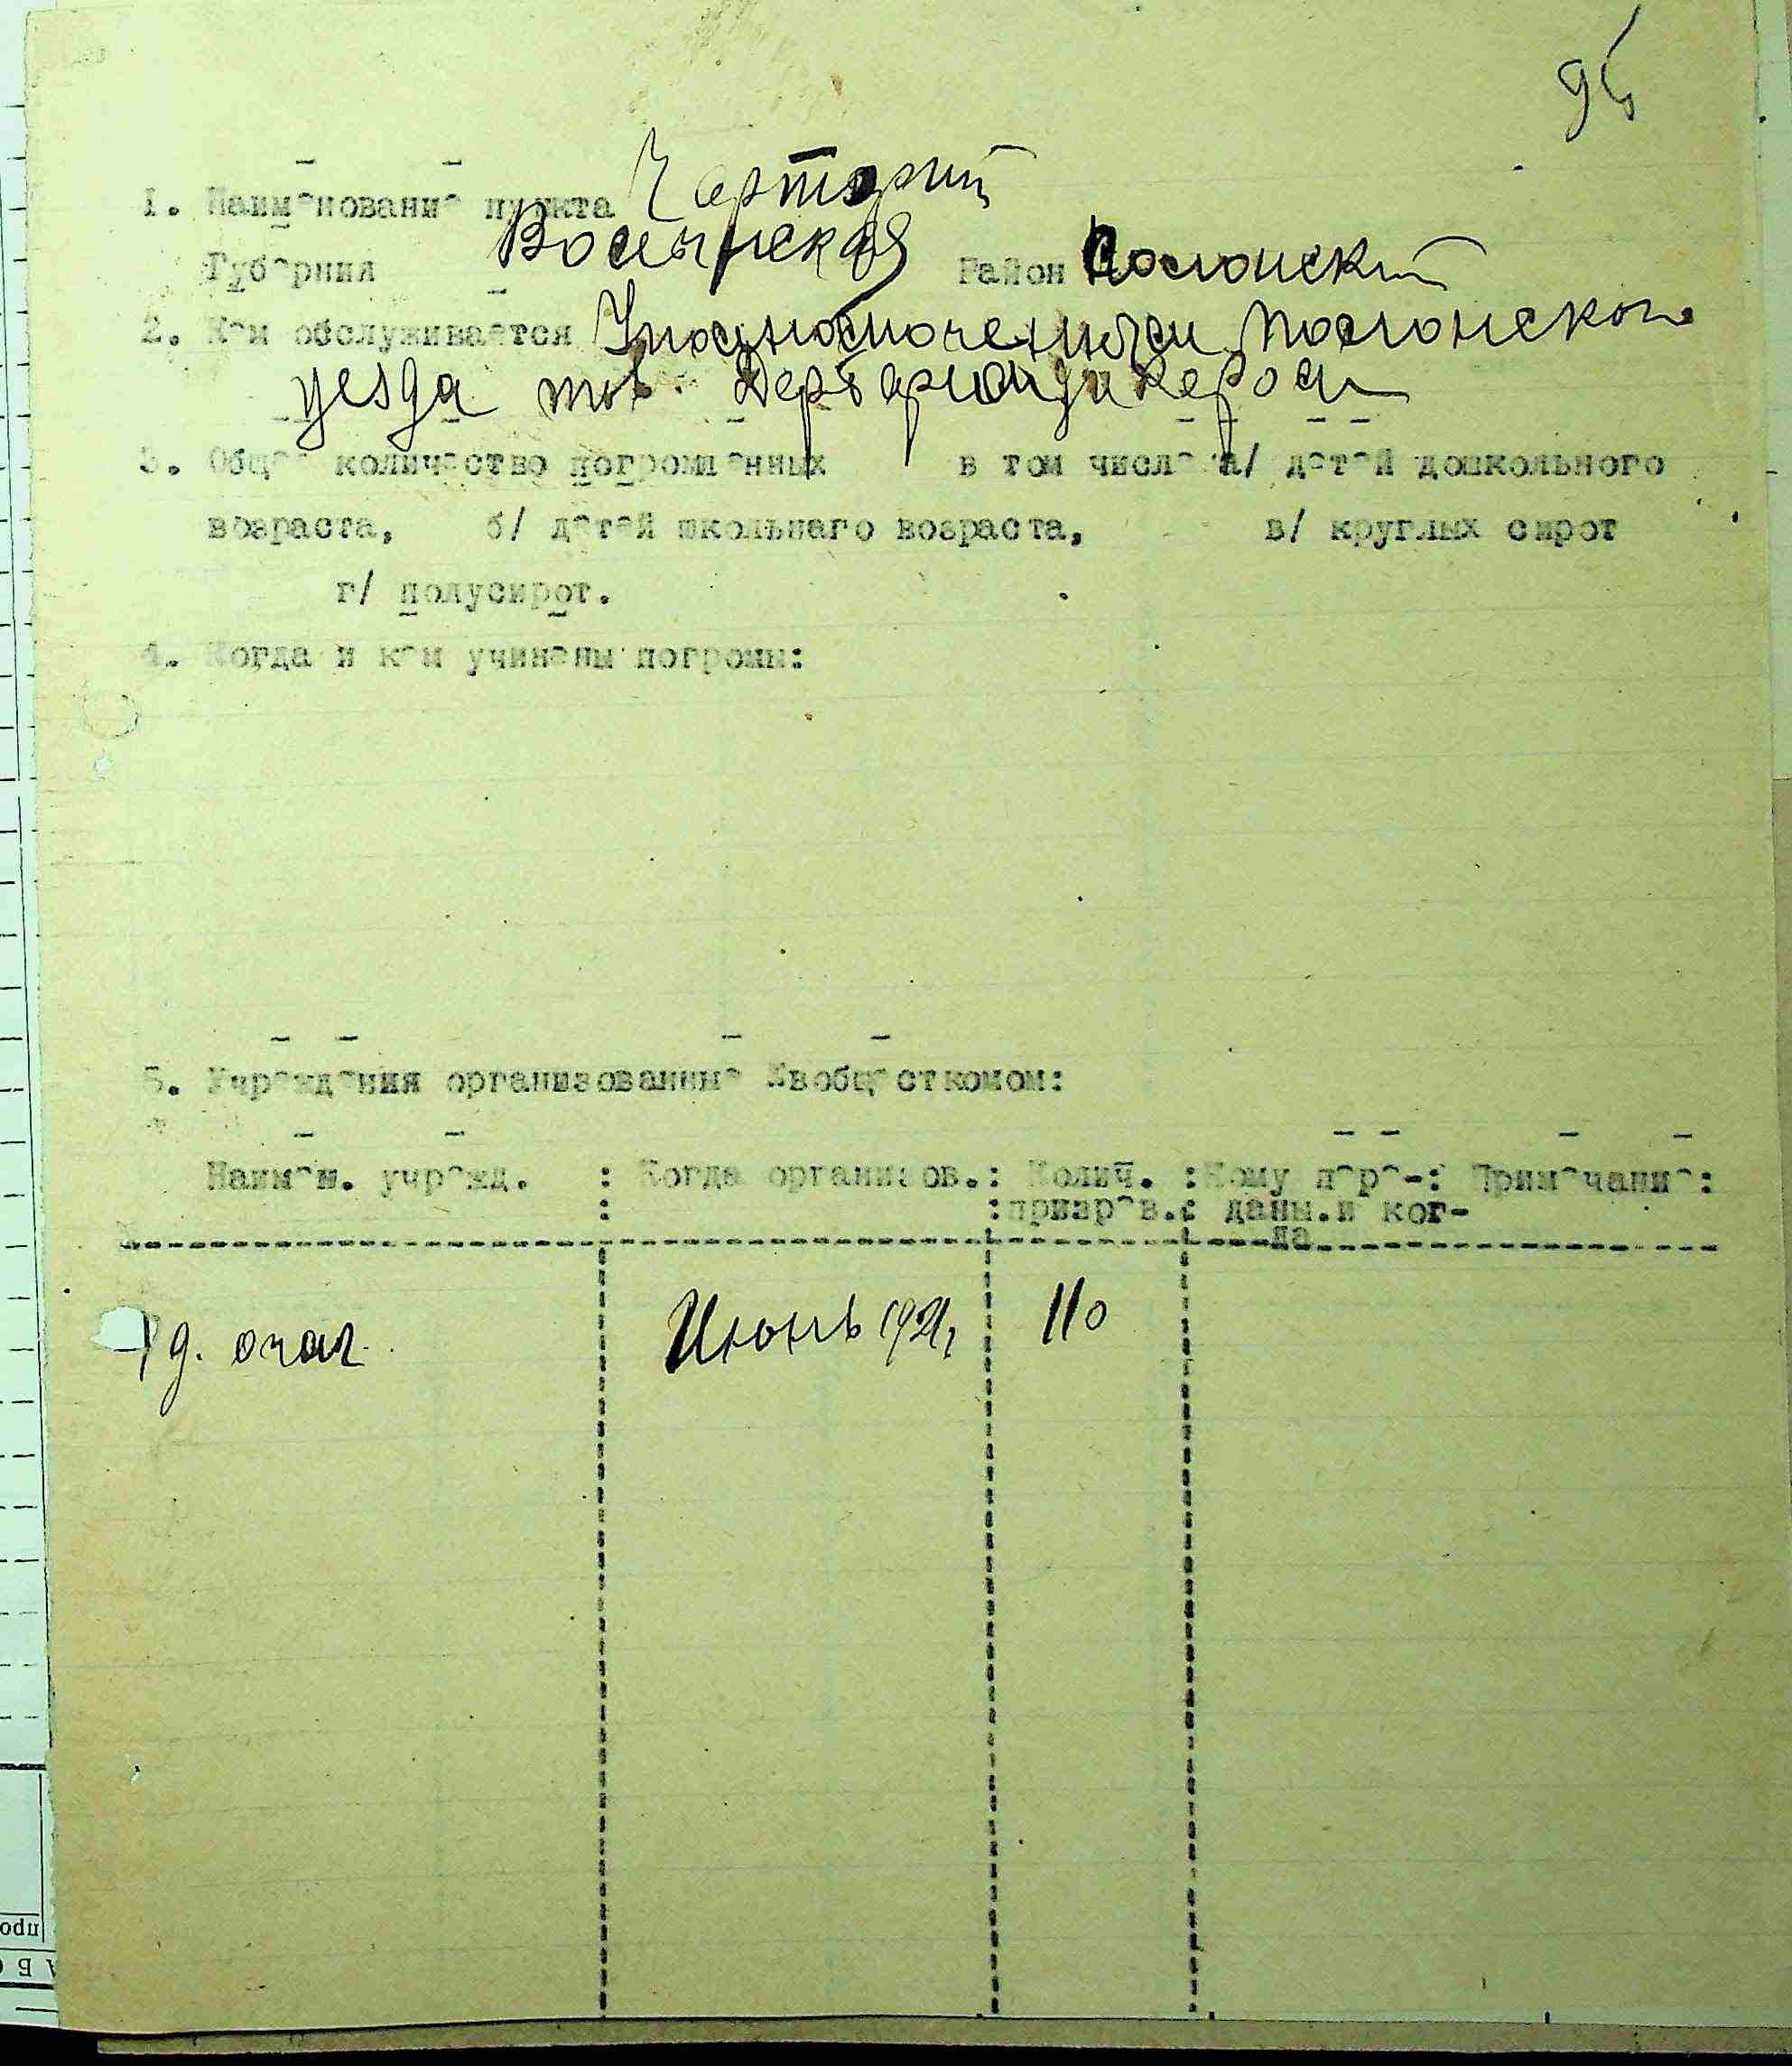 95
1. Наименование пункта Чарторий
Губерния Волынская Район Полонский
2. Кем обслуживается Уполномоченным Полонского
уезда тов.
3. Общее количество погромленных в том числе а/ детей дошкольного
возраста, б/ детей школьнаго возраста, в/ круглых сирот
г/ полусирот.
4. Когда и кем учинены погромы:
5. Учреждения организованные Евобщесткомом:
Наимен. учрежд. : Когда организов. : Колич. : Кому пере- : Примечание :
: : призрев. : даны и ког-
да
1 д. очаг. Июнь 1921 110